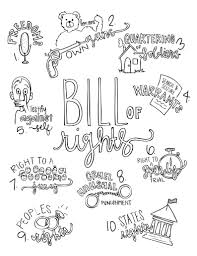 1
FREEDOMS
2
own guns
3
QUARTERING
of soldiers
4
WARRANTS
BILL
OF
rights
5
testify
against
self
6
RIGHT TO
TRIAL
7
RIGHT TO A
jury
8
CRUEL
UNUSUAL
PUNISHMENT
9
PEOPLES
rights
10
STATES
rights